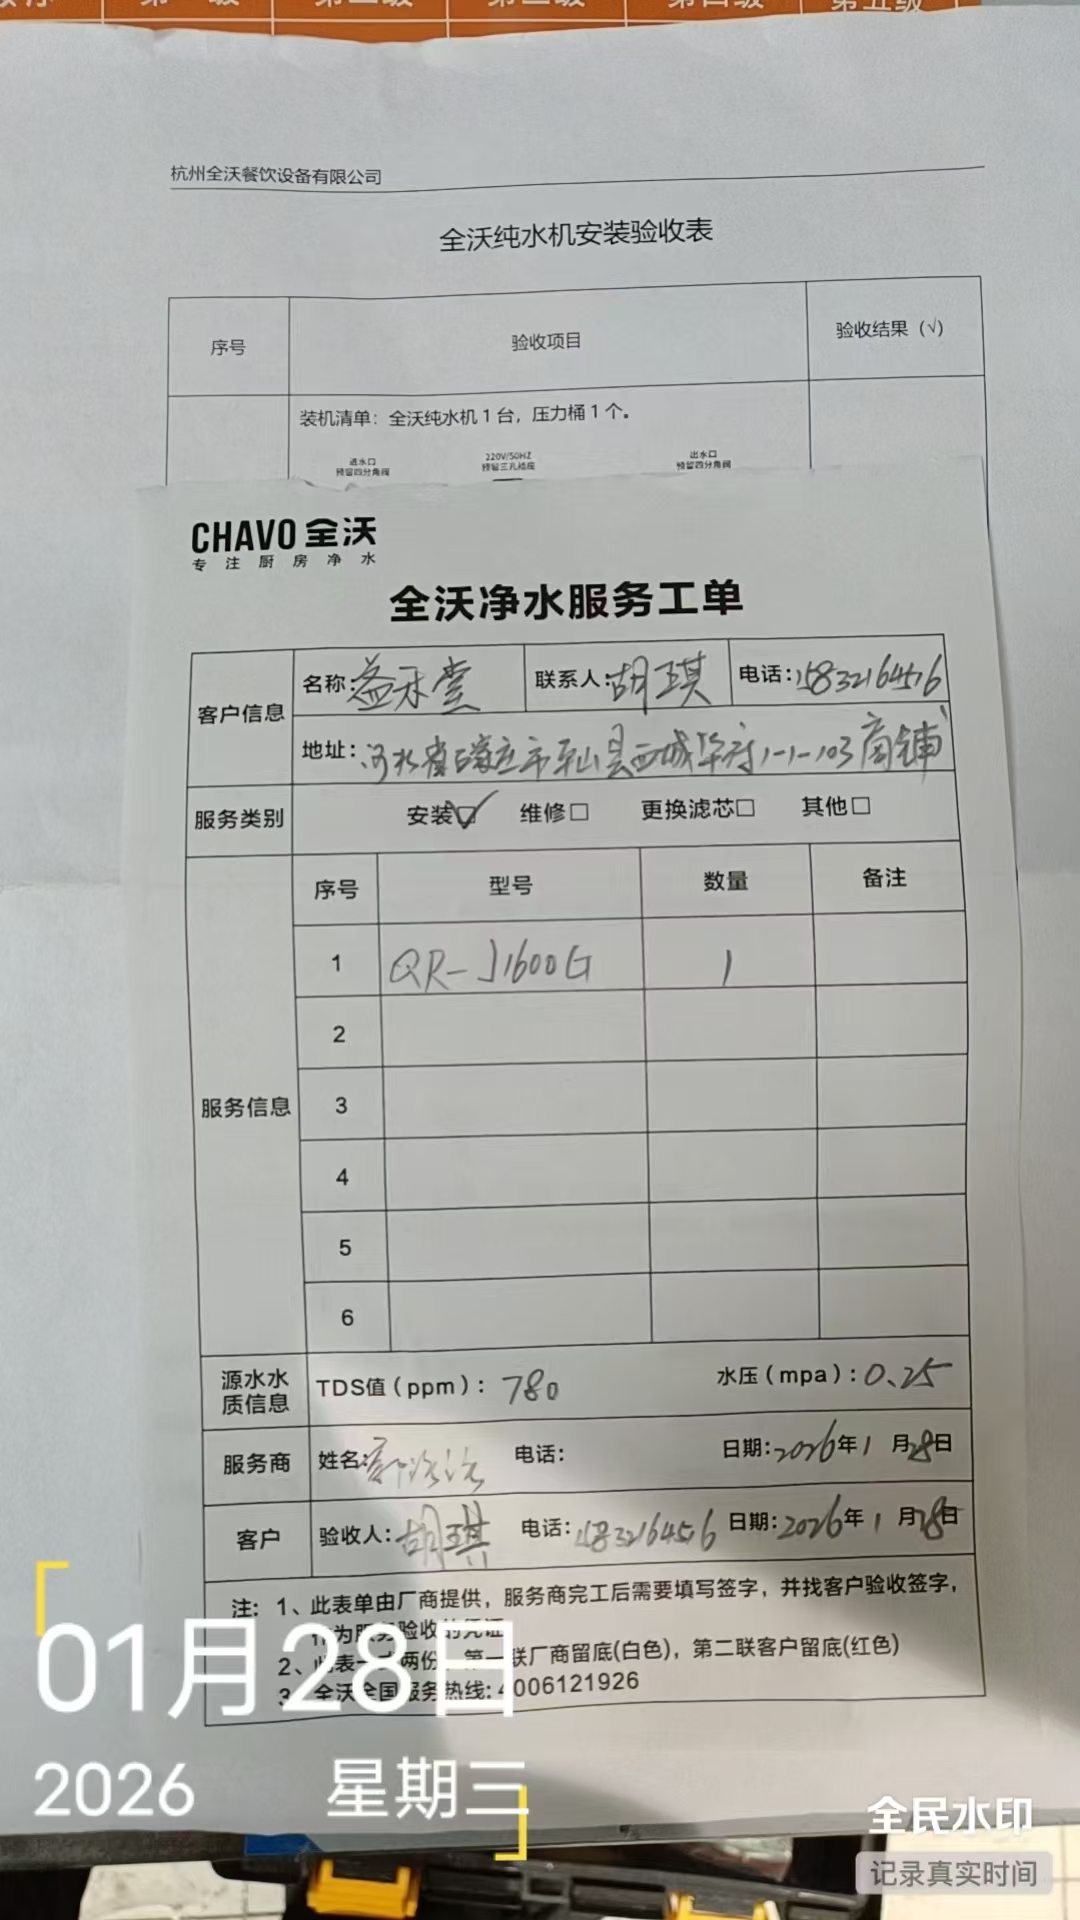 第一级 第二级 第三级 第四级 第五级
杭州全沃餐饮设备有限公司
全沃纯水机安装验收表
序号 验收项目 验收结果（√）
装机清单：全沃纯水机1台，压力桶1个。
进水口 220V/50HZ 出水口
预留四分角阀 预留三孔插座 预留四分角阀
CHAVO 全沃
专注厨房净水
全沃净水服务工单
客户信息 名称：益禾堂 联系人：胡琪 电话：15832164516
地址：河北省石家庄市平山县西城华府1-1-103商铺
服务类别 安装☑ 维修□ 更换滤芯□ 其他□
服务信息 序号 型号 数量 备注
1 QR-J1600G 1
2
3
4
5
6
源水水质信息 TDS值（ppm）：780 水压（mpa）：0.25
服务商 姓名： 电话： 日期：2026年1月28日
客户 验收人：胡琪 电话：15832164516 日期：2026年1月28日
注：1、此表单由厂商提供，服务商完工后需要填写签字，并找客户验收签字，
作为服务验收的凭证
2、此表一式两份，第一联厂商留底(白色)，第二联客户留底(红色)
3、全沃全国服务热线：4006121926
01月28日
2026 星期三
全民水印
记录真实时间